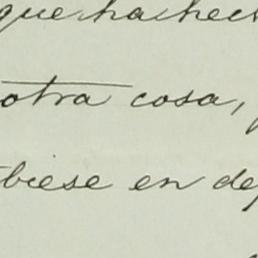 que ha hec
otra cosa,
biese en de